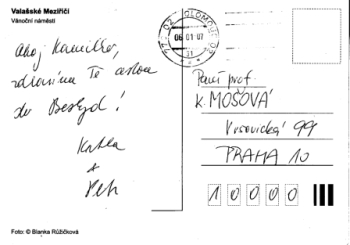 Valašské Meziříčí
Vánoční náměstí
Ahoj Kamilko,
zdravíme Tě cestou
do Beskyd!
Katka
+
Petr
Foto: © Blanka Růžičková
772 02 OLOMOUC 02
06 01 07
Paní prof.
K. MOŠOVÁ
Vršovická 99
PRAHA 10
1 0 0 0 0